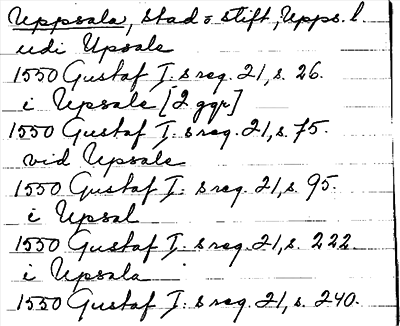 Uppsala, stad o stift, Upps. l.
udi Upsale
1550 Gustaf I: s reg. 21, s. 26.
i Upsale [2 ggr]
1550 Gustaf I: s reg. 21, s. 75.
vid Upsale
1550 Gustaf I: s reg. 21, s. 95.
i Upsal
1550 Gustaf I: s reg. 21, s. 222.
i Upsala
1550 Gustaf I: s reg. 21, s. 240.